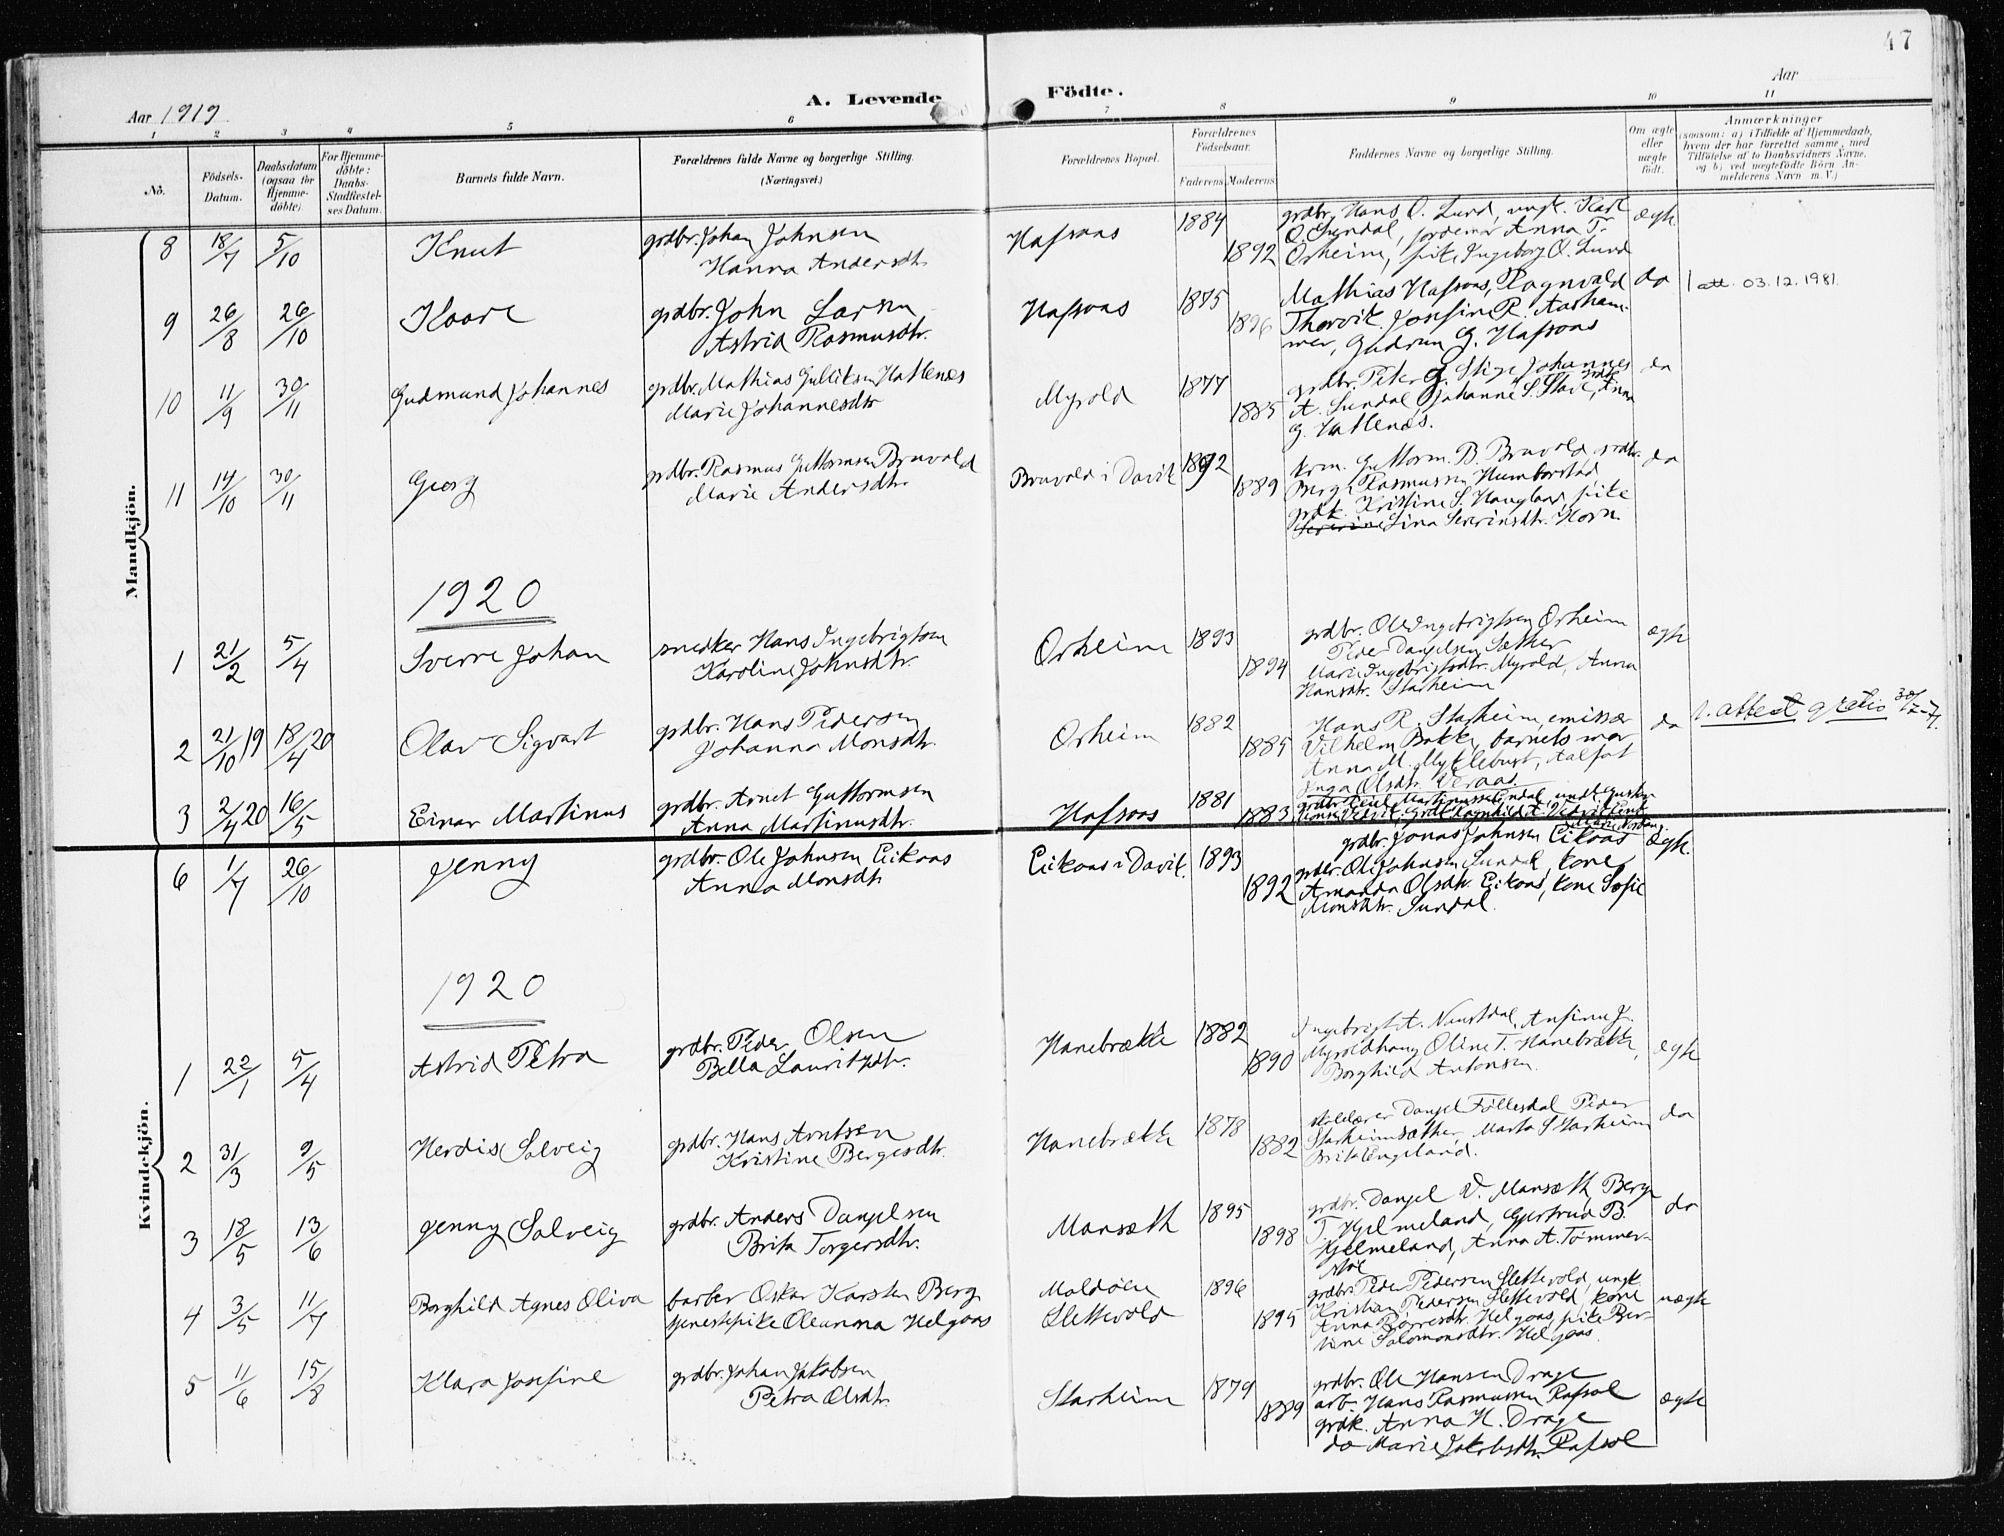 47
Aar 1919
A. Levende Födte.
Aar
1 2 3 4 5 6 7 8 9 10 11
Nô.
Födsels-Datum.
Daabsdatum (ogsaa for Hjemme-döbte).
For Hjemme-döbte: Daabs-Stadfæstel-ses Datum.
Barnets fulde Navn.
Forældrenes fulde Navne og borgerlige Stilling.
(Næringsvei.)
Forældrenes Bopæl.
Forældrenes Födselsaar.
Faderens. Moderens.
Faddernes Navne og borgerlige Stilling.
Om ægte eller uægte födt.
Anmærkninger
(saasom: a) i Tilfælde af Hjemmedaab,
hvem der har forrettet samme, med
Tilföielse af to Daabsvidners Navne,
og b) ved uægtefödte Börn An-
melderens Navn m. V.)
Mandkjön.
8 18/7 5/10 Knut
grdbr. Johan Johnsen
Hanna Andersdtr.
Hafsaas 1884 1892
grdbr. Hans O. Lund, ungk. Karl
O. Sundal, jordemor Anna T.
Orheim, pike Ingeborg O. Lund
ægte
9 26/8 26/10 Kaare
grdbr. John Larsen
Astrid Rasmusdtr.
Hafsaas 1875 1896
Mathias Hafsaas, Ragnvald
Thorvik. Josefine R. Aarham-
mer, Gudrun G. Hafsaas
do
1 att. 03.12.1981.
10 11/9 30/11 Gudmund Johannes
grdbr. Mathias Gulliksen Hatlenæs
Marie Johannesdtr
Myrold 1877 1885
grdbr. Peter G. Stige Johannes
A. Sundal, Johanne S. Anna
G. Hatlenæs.
do
11 14/10 30/11 Georg
grdbr. Rasmus Guttormsen Bruvold
Marie Andersdtr.
Bruvold i Davik 1892 1889
krm. Guttorm B. Bruvold grdbr.
Berge Rasmussen Humborstad
grdk. Kristine S. Haugland, pike
Severine Lina Severinsdtr. Horn.
do
1920
1 21/2 5/4 Sverre Johan
snedker Hans Ingebrigtsen
Karoline Johnsdtr.
Orheim 1893 1894
grdbr. Ole Ingebrigtsen Orheim
Peder Danjelsen Sæther
Marie Ingebrigtsdtr. Myrold, Anna
Hansdtr. Starheim
ægte
2 21/10 19 18/4 20 Olav Sigvart
grdbr. Hans Pedersen
Johanna Monsdtr.
Orheim 1882 1885
Hans R. Starheim, emissær
Vilhelm Bakke, barnets mor
Anna M. Myklebust, Aalfot
Inga Olsdtr.
do
1. attest gratis
3 2/4 20 16/5 Einar Martinus
grdbr. Arnet Guttormsen
Anna Martinusdtr.
Hafsaas 1881 1883
Kvindekjön.
6 1/7 26/10 Jenny
grdbr. Ole Johnsen Eikaas
Anna Monsdtr
Eikaas i Davik. 1893 1892
grdbr. Jonas Johnsen Eikaas
grdbr. Ole Johnsen Sundal, kone
Amanda Olsdtr. Eikaas, kone Sofie
Monsdtr. Sundal.
Ægte.
1920
1 22/1 5/4 Astrid Petra
grdbr. Peder Olsen
Bella Lauritzdtr.
Hanebrække 1882 1890
Ingebrigt A. Naustdal, Ansine J.
Myroldhaug Oline T. Hanebrække,
Borghild Antonsen
ægte
2 31/3 9/5 Herdis Solveig
grdbr. Hans Arntsen
Kristine Bergesdtr.
Hanebrække 1878 1882
Danjel Föllesdal Peder
Starheimsæther, Marta S Starheim
Brita Engeland.
do
3 18/5 13/6 Jenny Solveig
grdbr. Anders Danjelsen
Brita Torgersdtr.
Maasæth 1895 1898
grdbr. Danjel V. Maasæth, Berge
T. Hjelmeland, Gjertrud B.
Hjelmeland, Anna A. Tömmer-
stöl
do
4 3/5 11/7 Borghild Agnes Oliva
barber Oskar Karsten Berg
tjenestepike Oleanna Helgaas
Maldöen
Slettevold
1896 1895
grdbr. Peder Pedersen Slettevold, ungk.
Kristian Pedersen Slettevold, kone
Anna Börresdtr. Helgaas, pike Ber-
tine Salomonsdtr. Helgaas.
uægte
5 11/6 15/8 Klara Josefine
grdbr. Johan Jakobsen
Petra Olsdtr.
Starheim 1879 1889
grdbr. Ole Hansen Drage
arb. Hans Rasmussen Rafsol
grdk. Anna H. Drage
do Marie Jakobsdtr. Rafsol
ægte